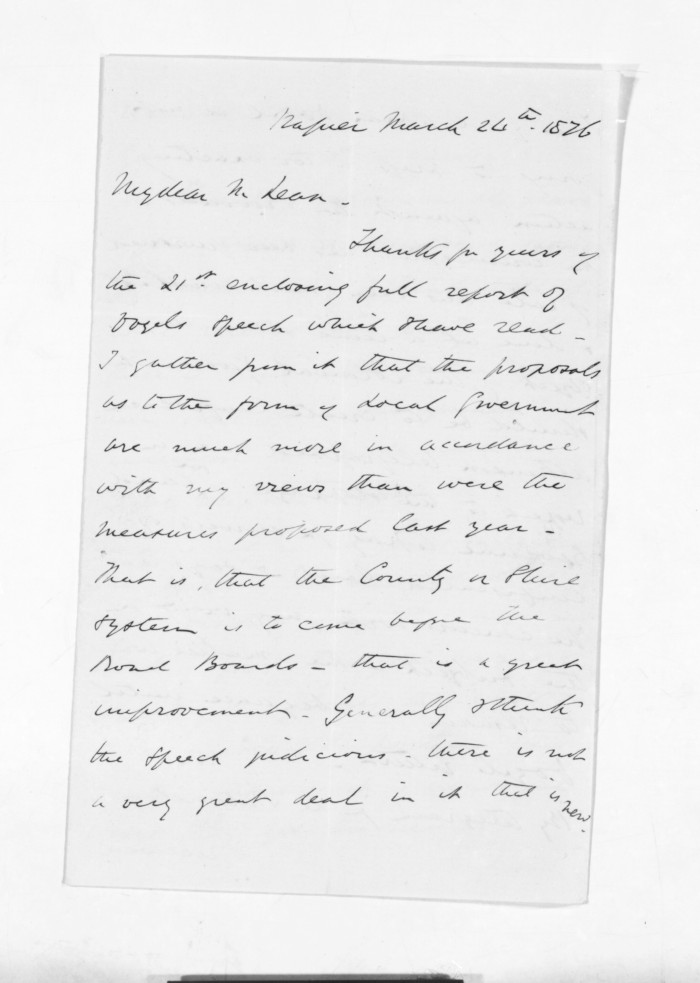 Napier March 24th. 1876
My dear McLean -
Thanks for yours of
the 21st enclosing full report of
Vogels speech which I have read -
I gather from it that the proposals
as to the form of Local Government
are much more in accordance
with my views than were the
measures proposed last year -
That is, that the County or Shire
system is to come before the
Road Boards - that is a great
improvement - Generally I think
the speech judicious - there is not
a very great deal in it that is new.